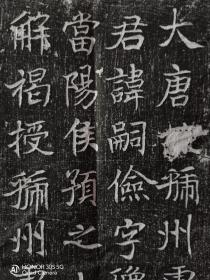 大唐州
君諱嗣儉字
當陽侯預之
解褐授州
HONOR 30S 5G